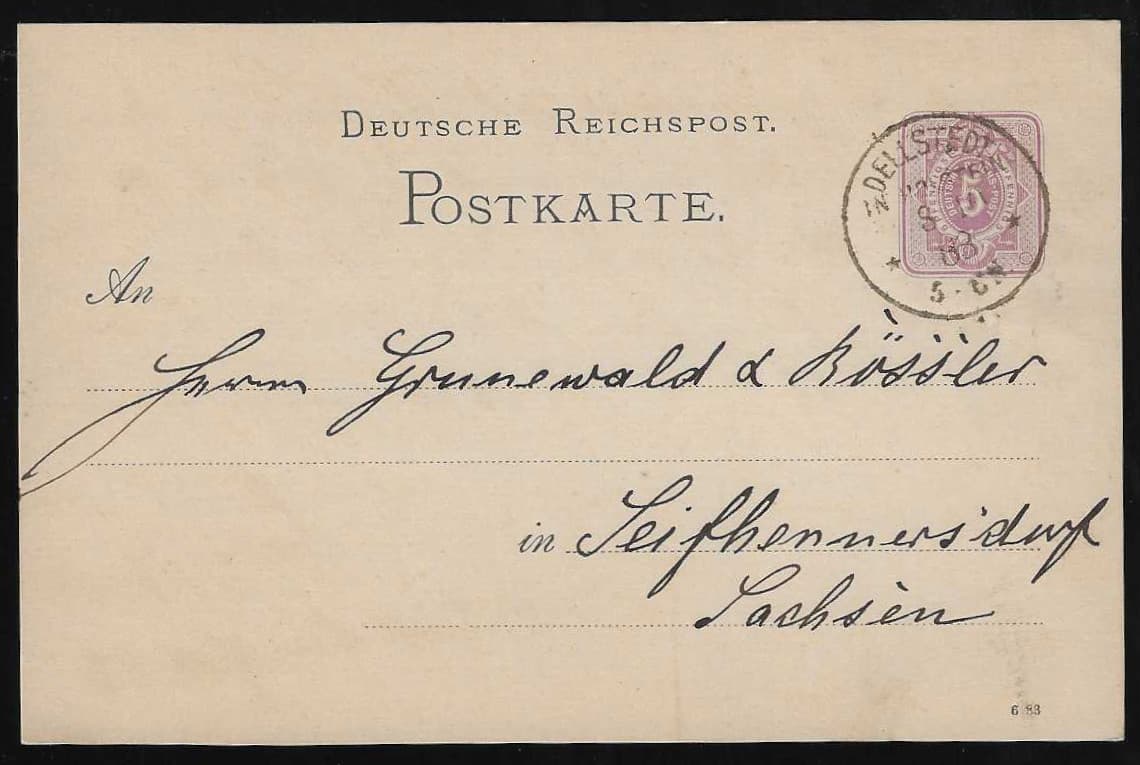 DEUTSCHE REICHSPOST.
POSTKARTE.
DELLSTEDT
5
5-6N
An
Herrn Grunewald & Rössler
in Seifhennersdorf
Sachsen
6 83